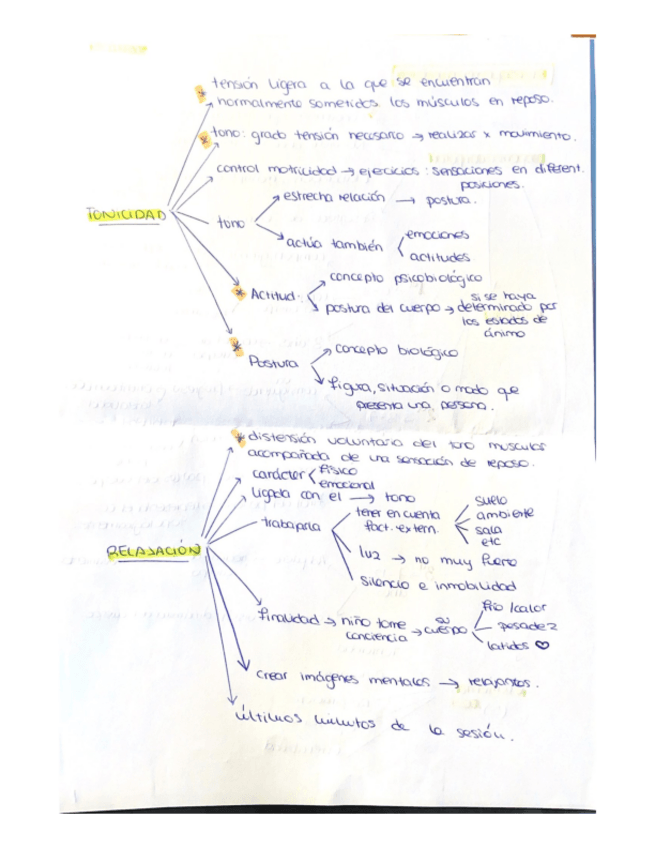 * tensión ligera a la que se encuentran
normalmente sometidos los músculos en reposo.
* tono: grado tensión necesario → realizar x movimiento.
control motricidad → ejercicios: sensaciones en diferent.
posiciones.
TONICIDAD
tono
estrecha relación → postura.
actúa también
emociones
actitudes
* Actitud:
concepto psicobiológico
postura del cuerpo → si se haya
determinado por
los estados de
ánimo
* Postura
concepto biológico
figura, situación o modo que
presenta una persona.
* distensión voluntaria del tono muscular
acompañada de una sensación de reposo.
carácter
físico
emocional
ligada con el → tono
RELAJACIÓN
trabajarla
tener en cuenta
fact. extern.
suelo
ambiente
sala
etc
luz → no muy fuerte
silencio e inmobilidad
finalidad → niño tome
conciencia → su
cuerpo
frío / calor
pesadez
latidos ♡
crear imágenes mentales → relajantes.
últimos minutos de la sesión.